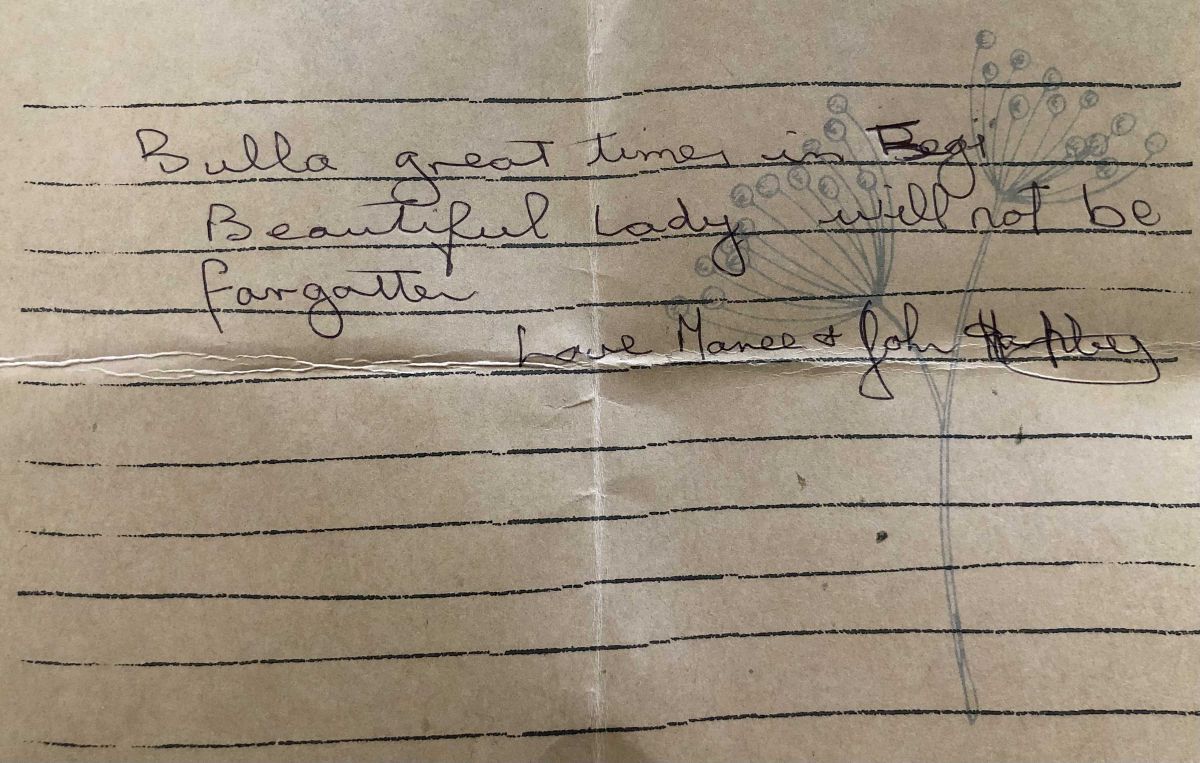 Bulla great times in
Beautiful Lady will not be
forgotten
Love & John